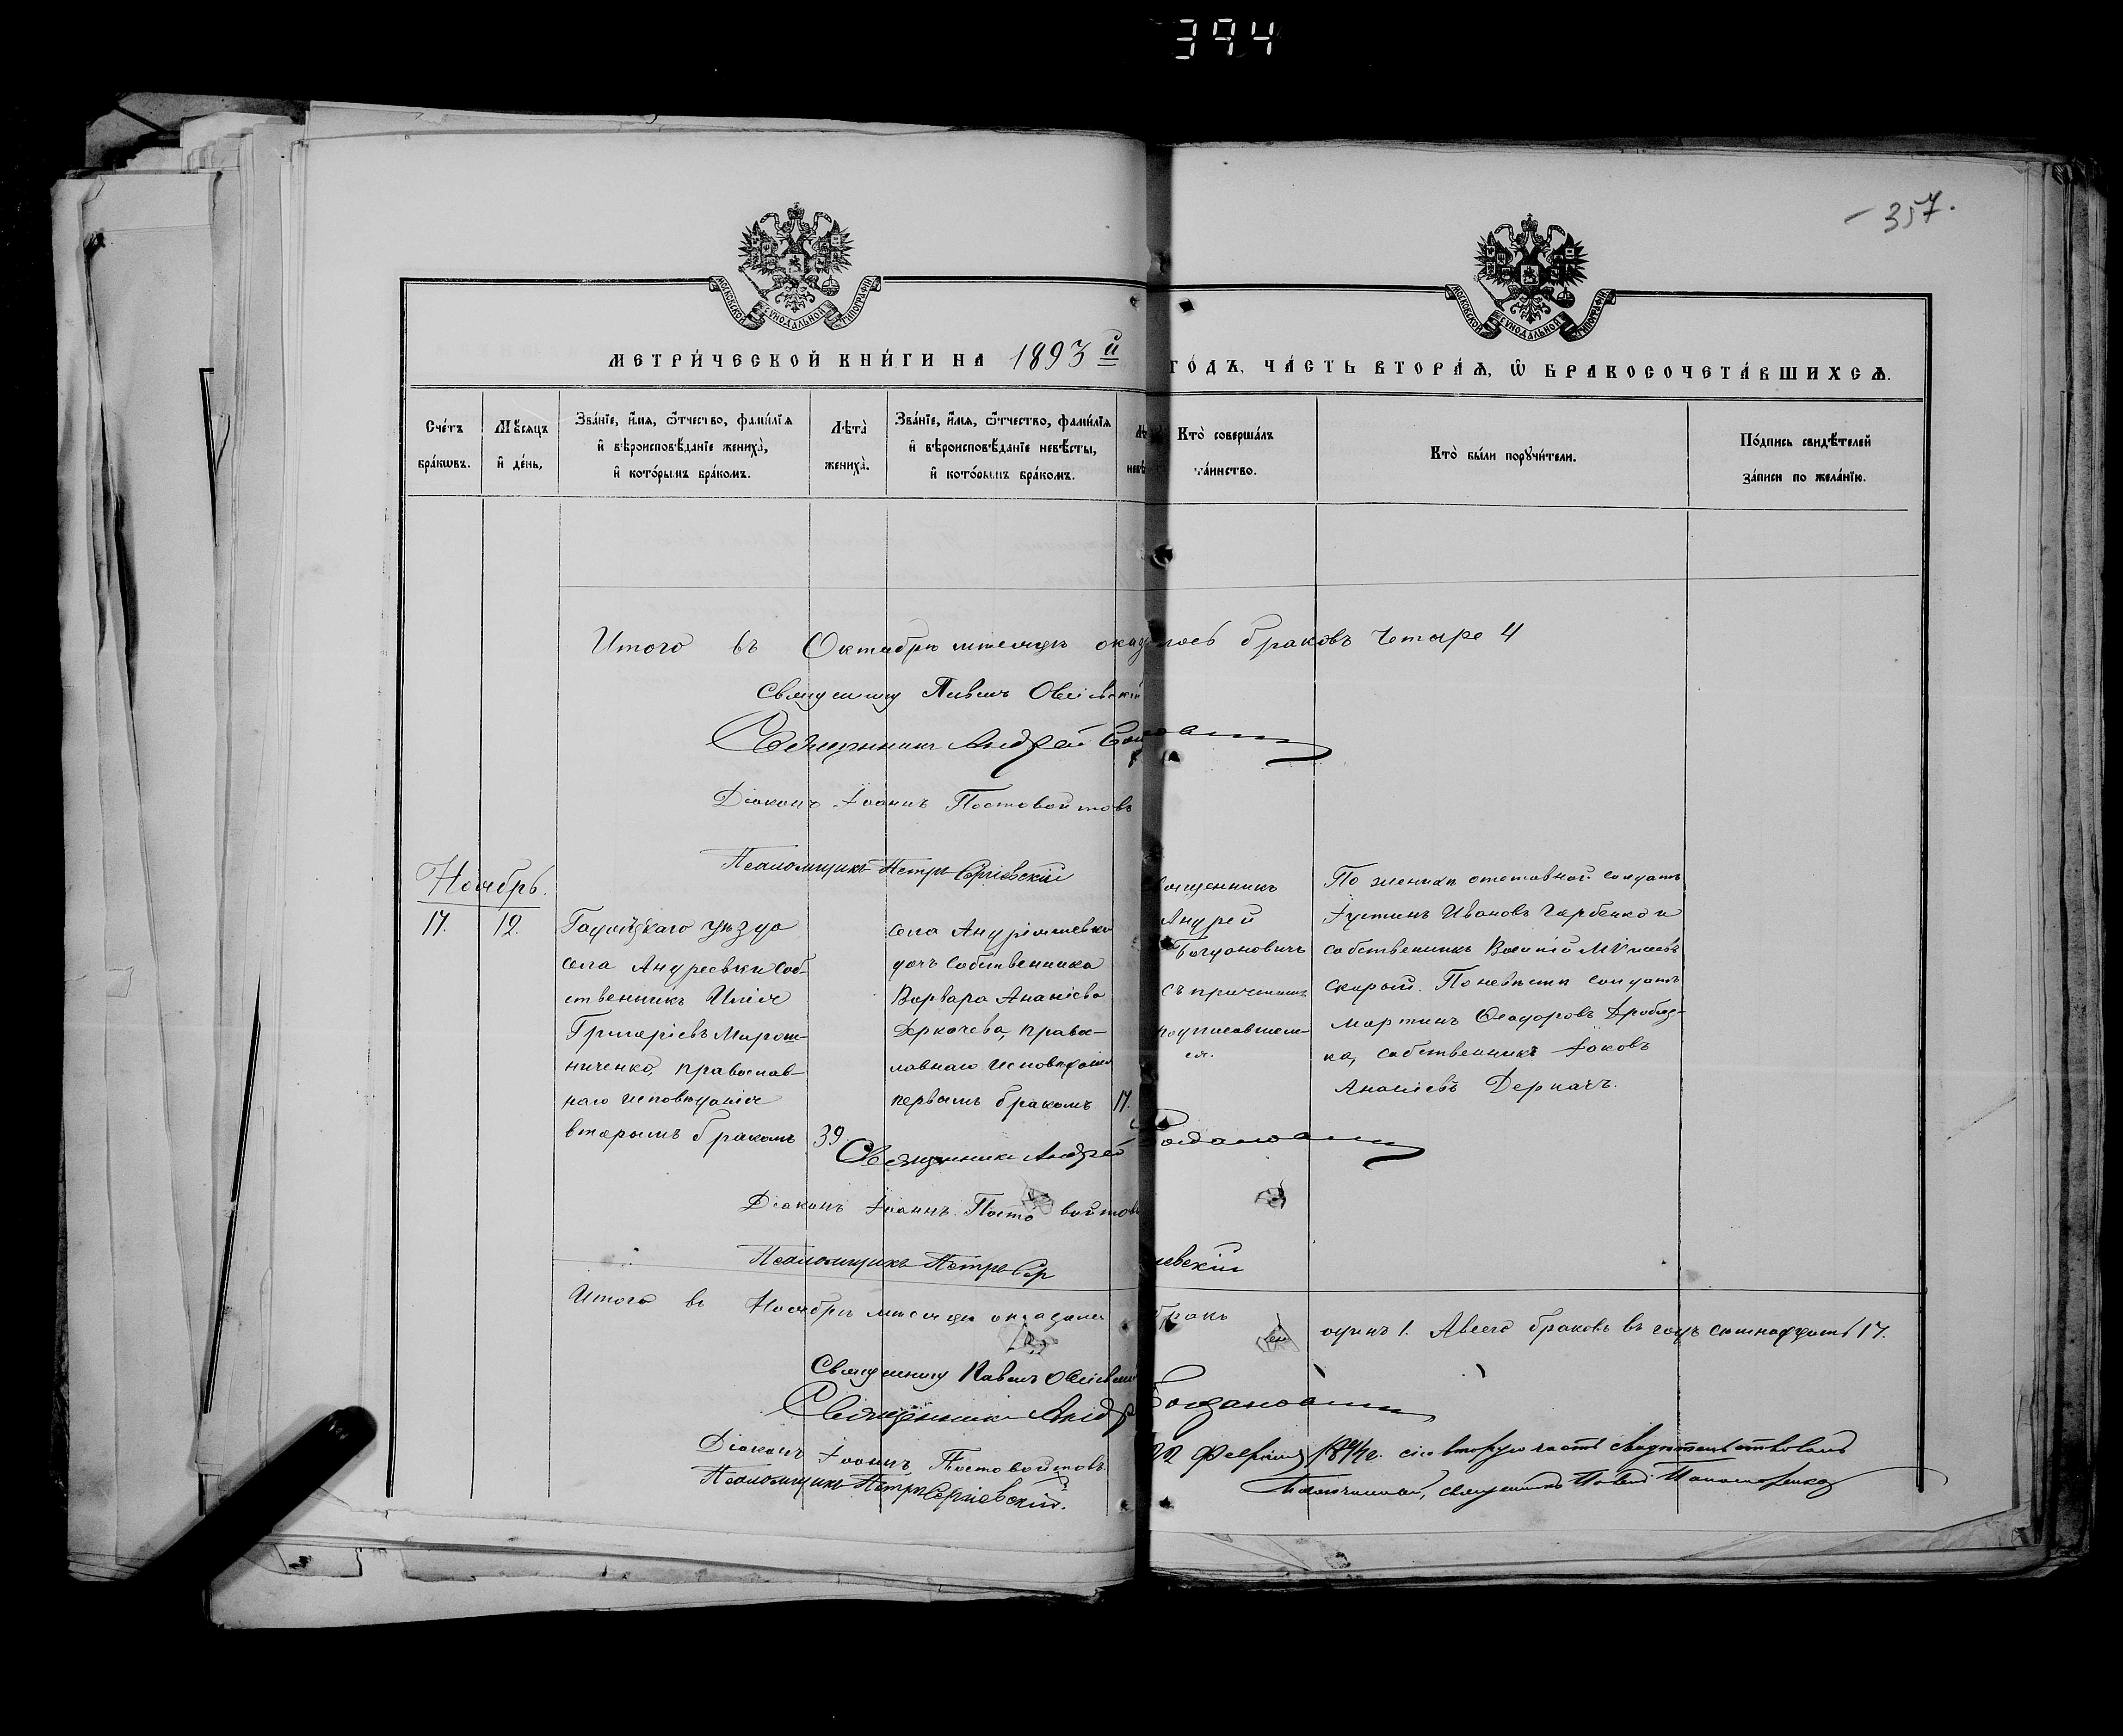 394
357.
МОСКОВСКОЙ СѴНОДАЛЬНОЙ ТИПОГРАФІИ
МОСКОВСКОЙ СѴНОДАЛЬНОЙ ТИПОГРАФІИ
МЕТРИ́ЧЕСКОЙ КНИ́ГИ НА 1893й ГО́ДЪ, ЧА́СТЬ ВТОРА́Ѧ, Ѽ БРАКОСОЧЕТА́ВШИХСѦ.
Сче́тъ бра́кѡвъ.
Мѣ́сяцъ и҆ де́нь.
Зва́нїе, и҆́мя, ѻ҆́тчество, фами́лїя
и҆ вѣроисповѣ́данїе жениха̀,
и҆ кото́рымъ бра́комъ.
Лѣта̀ жениха̀.
Зва́нїе, и҆́мя, ѻ҆́тчество, фами́лїя
и҆ вѣроисповѣ́данїе невѣ́сты,
и҆ кото́рымъ бра́комъ.
Кто̀ соверша́лъ
та́инство.
Кто̀ бы́ли порꙋчи́тели.
По́дпись свидѣ́телей
за́писи по жела́нїю.
Итого въ Октябрѣ мѣсяцѣ оказалось браковъ четыре 4
Священникъ Павелъ
Священникъ Андрей Богдановичъ
Діаконъ Іоаннъ Постовойтовъ
Псаломщикъ Петръ Сергіевскій
Ноябрь.
17.
12.
Гадячскаго уѣзда
села Андреевки соб-
ственникъ Илія
Григоріевъ Мирош-
ниченко, православ-
наго исповѣданія
вторымъ бракомъ
39
села Андріяшевки
дочь собственника
Варвара Ананіева
Деркачева, право-
славнаго исповѣданія
первымъ бракомъ
17.
Священникъ
Андрей
Богдановичъ
съ причтомъ
подписавшим-
ся.
По женихѣ отставной солдатъ
Іустинъ Ивановъ Гарбенко и
собственникъ
По невѣстѣ солдатъ
Мартинъ Ѳеодоровъ
собственникъ Іаковъ
Ананіевъ Деркачъ.
Священникъ Андрей Богдановичъ
Діаконъ Іоаннъ Постовойтовъ
Псаломщикъ Петръ Сергіевскій
Итого въ Ноябрѣ мѣсяцѣ оказался бракъ одинъ 1. А всего браковъ въ годъ семнадцать 17.
Священникъ Павелъ
Священникъ Андрей Богдановичъ
Діаконъ Іоаннъ Постовойтовъ
Псаломщикъ Петръ Сергіевскій.
22 Февраля 1894 г. сію вторую часть свидѣтельствовалъ
Благочинный, священникъ Пономаренко